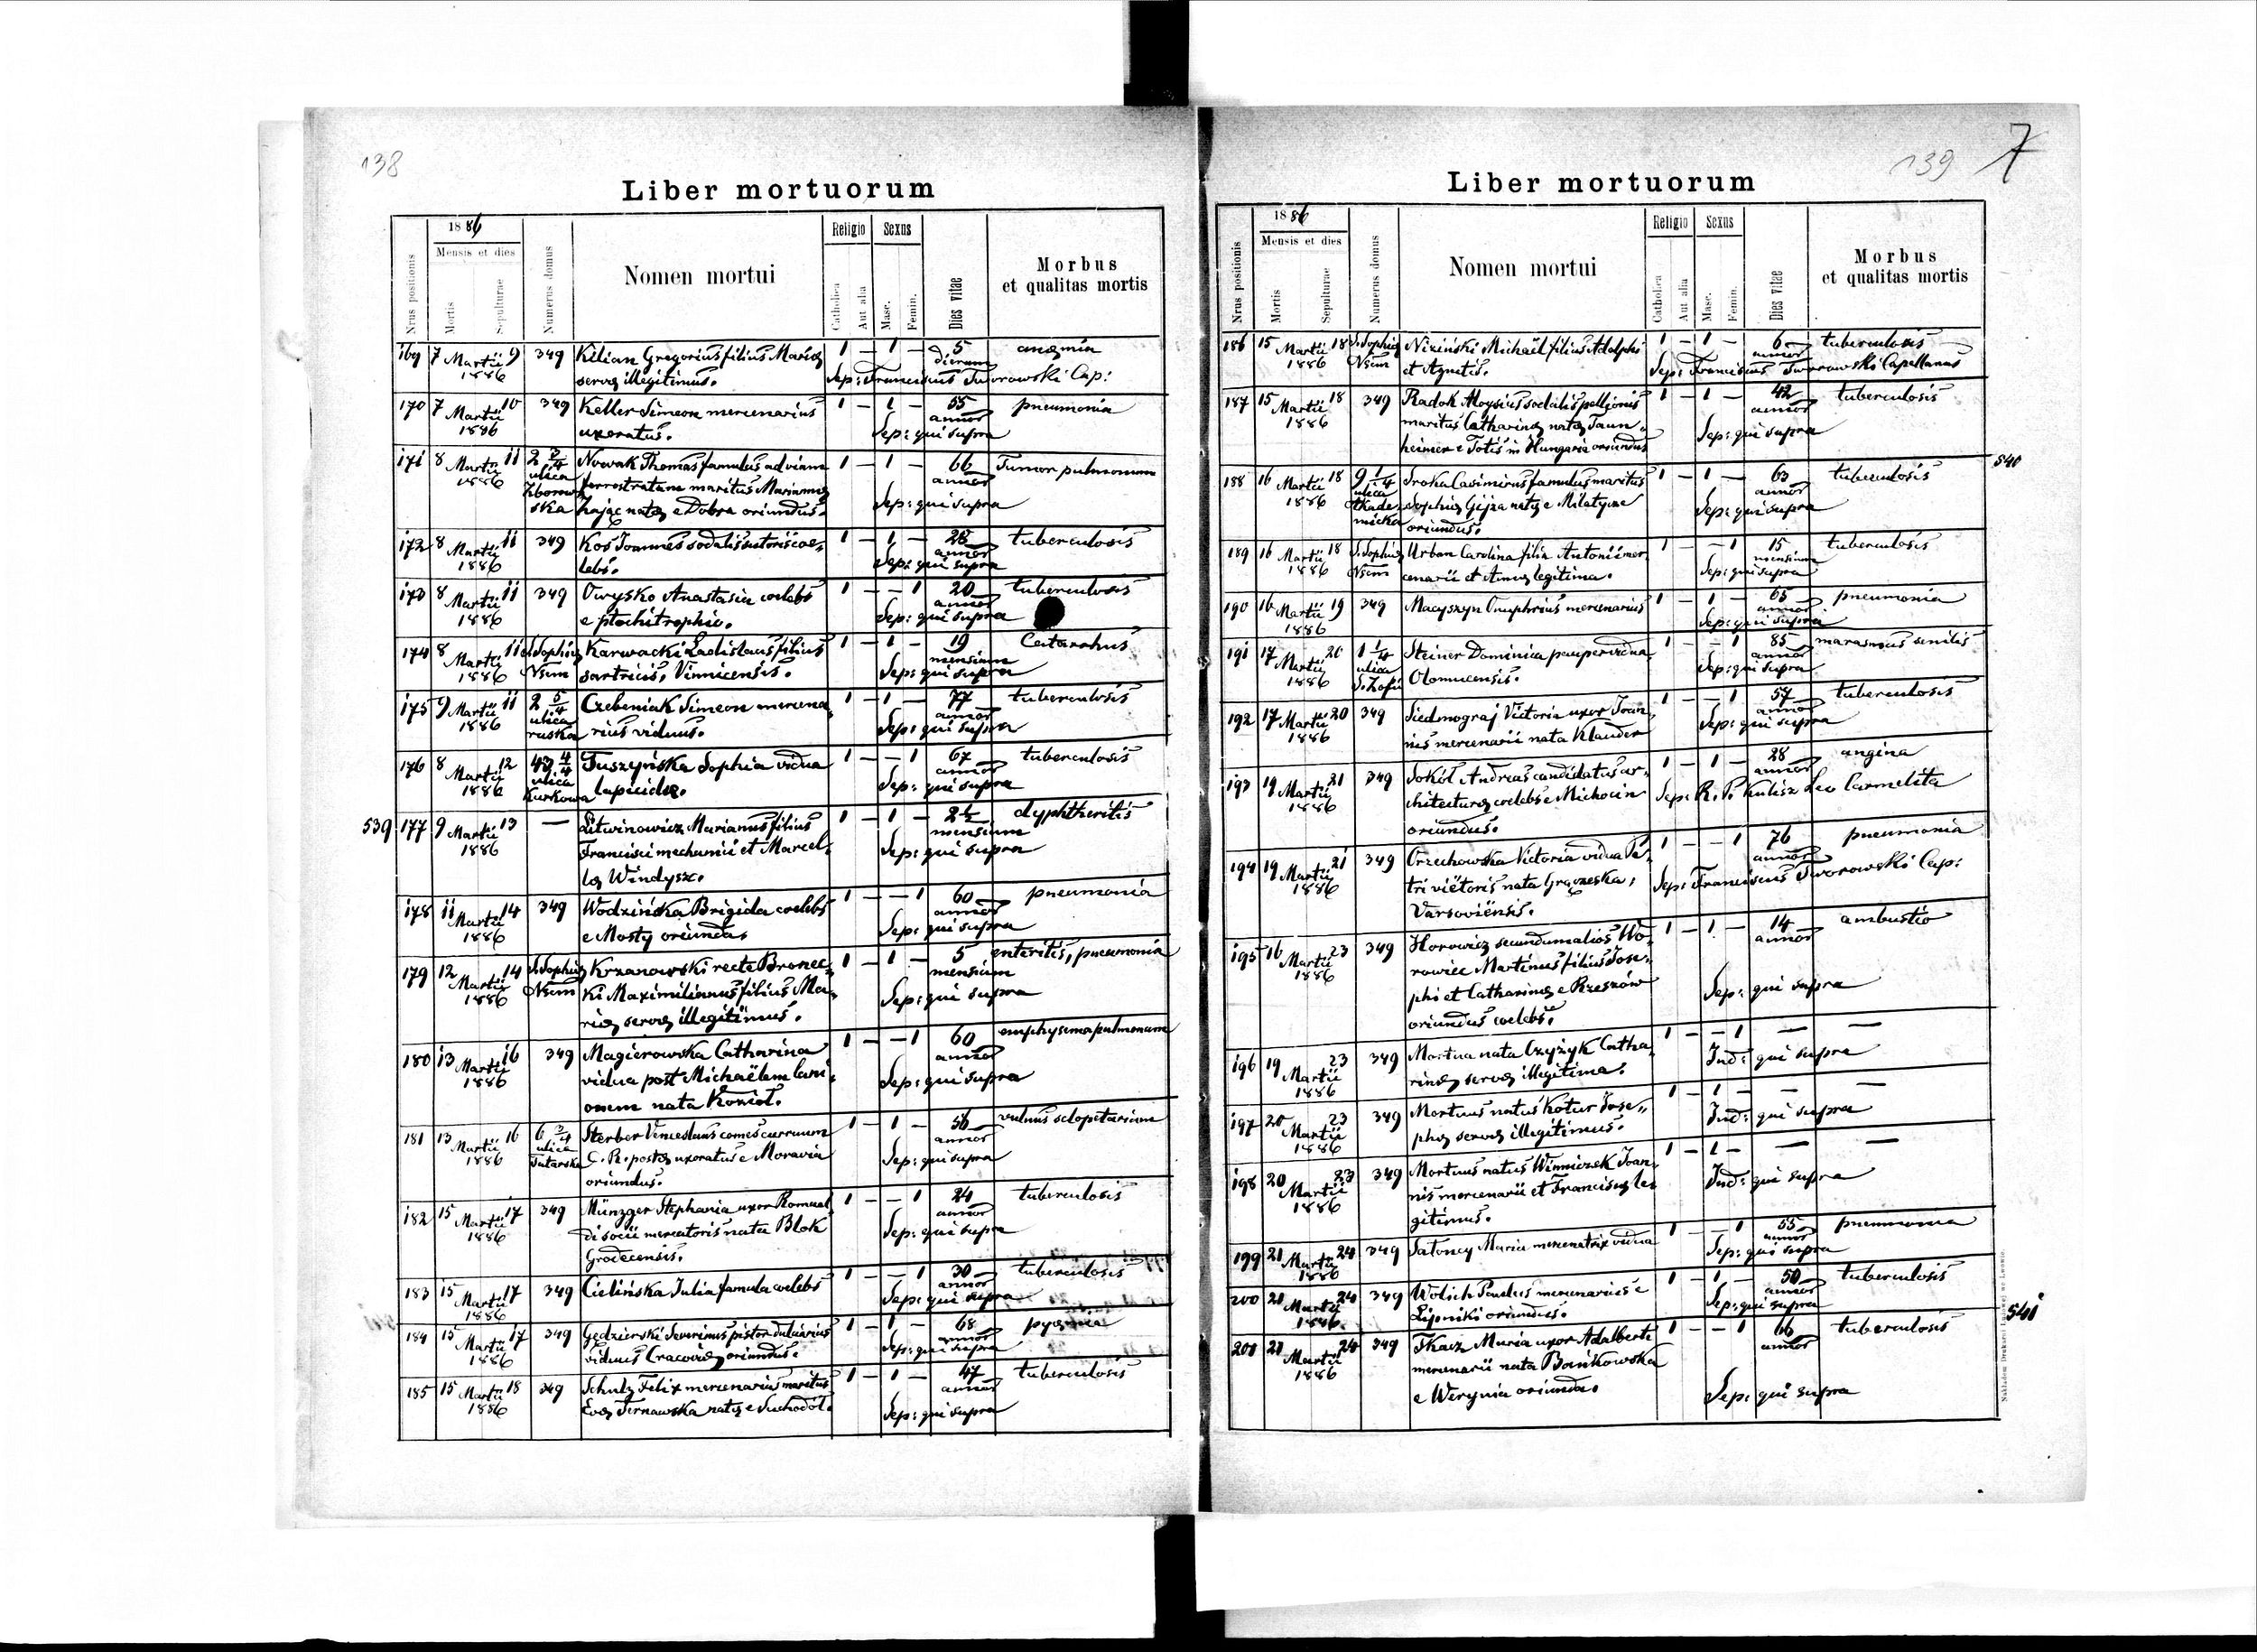 138
Liber mortuorum
Nrus positionis
1886
Mensis et dies
Mortis
Sepulturae
Numerus domus
Nomen mortui
Religio
Catholica
Aut alia
Sexus
Masc.
Femin.
Dies vitae
Morbus
et qualitas mortis
169 7 Martii 9 349 Kilian Gregorius filius Mariæ 1 — 1 — 5 anæmia
1886 servæ illegitimus. dierum
Sep: Franciscus Tworowski Cap:
170 7 Martii 10 349 Keller Simeon mercenarius 1 — 1 — 55 pneumonia
1886 uxoratus. annor
Sep: qui supra
171 8 Martii 11 2 2/4 Nowak Thomas famulus ad viam 1 — 1 — 66 Tumor pulmonum
1886 ulica ferrestratam maritus Mariannæ annor
Zborow
ska Zając natæ e Dobra oriundus. Sep: qui supra
172 8 Martii 11 349 Koś Joannes sodalis sutoris coe- 1 — 1 — 28 tuberculosis
1886 lebs. annor
Sep: qui supra
173 8 Martii 11 349 Owysko Anastasia coelebs 1 — — 1 20 tuberculosis
1886 e ptochotrophio. annor
Sep: qui supra
174 8 Martii 11 S. Sophiæ Karwacki Ladislaus filius 1 — 1 — 19 Catarrhus
1886 Nrum sartricis, Vinnicensis. mensium
Sep: qui supra
175 9 Martii 11 2 5/4 Czebeniak Simeon mercena 1 — 1 — 77 tuberculosis
1886 ulica ruska rius viduus. annor
Sep: qui supra
176 8 Martii 12 43 4/4 Tuszyńska Sophia vidua 1 — — 1 67 tuberculosis
1886 ulica Kurkowa lapicidæ. annor
Sep: qui supra
539 177 9 Martii 13 — Litwinowicz Marianus filius 1 — 1 — 2½ dyphtheritis
1886 Francisci mechanici et Marcel- mensium
læ Windysz. Sep: qui supra
178 11 Martii 14 349 Wodzińska Brigida coelebs 1 — — 1 60 pneumonia
1886 e Mosty oriunda. annor
Sep: qui supra
179 12 Martii 14 S. Sophiæ Krzanowski recte Bronec- 1 — 1 — 5 enteritis, pneumonia
1886 Nrum ki Maximilianus filius Ma- mensium
riæ servæ illegitimus. Sep: qui supra
180 13 Martii 16 349 Magierowska Catharina 1 — — 1 60 emphysema pulmonum
1886 vidua post Michaëlem lani- annor
onem nata Kozioł. Sep: qui supra
181 13 Martii 16 6 3/4 Sterber Venceslaus comes curruum 1 — 1 — 56 vulnus sclopetarium
1886 ulica Tatarska C. R. postæ uxoratus e Moravia annor
oriundus. Sep: qui supra
182 15 Martii 17 349 Münzger Stephania uxor Romual 1 — — 1 24 tuberculosis
1886 di socii mercatoris nata Blok annor
Grodecensis. Sep: qui supra
183 15 Martii 17 349 Cielińska Julia famula coelebs 1 — — 1 30 tuberculosis
1886 annor
Sep: qui supra
184 15 Martii 17 349 Gędzierski Severinus pistor dulciarius 1 — 1 — 68 pyæmia
1886 viduus Cracoviæ oriundus. annor
Sep: qui supra
185 15 Martii 18 349 Schulz Felix mercenarius maritus 1 — 1 — 47 tuberculosis
1886 Evæ Tarnawska natæ e Suchodół. annor
Sep: qui supra
139 7
Liber mortuorum
Nrus positionis
1886
Mensis et dies
Mortis
Sepulturae
Numerus domus
Nomen mortui
Religio
Catholica
Aut alia
Sexus
Masc.
Femin.
Dies vitae
Morbus
et qualitas mortis
186 15 Martii 18 S. Sophiæ Niziński Michaël filius Adolphi 1 — 1 — 6 tuberculosis
1886 Nrum et Agnetis. annor
Sep: Franciscus Tworowski Capellanus
187 15 Martii 18 349 Radok Aloysius sodalis pellionis 1 — 1 — 42 tuberculosis
1886 maritus Catharinæ natæ Taun- annor
heimer e Totis in Hungaria oriundus Sep: qui supra
540
188 16 Martii 18 9 1/4 Sroka Casimirus famulus maritus 1 — 1 — 63 tuberculosis
1886 ulica Akade- Sophiæ Gijza natæ e Milatycze annor
micka oriundus. Sep: qui supra
189 16 Martii 18 S. Sophiæ Urban Carolina filia Antonii mer- 1 — — 1 15 tuberculosis
1886 Nrum cenarii et Annæ legitima. mensium
Sep: qui supra
190 16 Martii 19 349 Macyszyn Onuphrius mercenarius 1 — 1 — 65 pneumonia
1886 annor
Sep: qui supra
191 17 Martii 20 1 1/4 Steiner Dominica pauper vidua 1 — — 1 85 marasmus senilis
1886 ulica S. Zofii Olomucensis. annor
Sep: qui supra
192 17 Martii 20 349 Siedmograj Victoria uxor Joan- 1 — — 1 57 tuberculosis
1886 nis mercenarii nata Klauder annor
Sep: qui supra
193 19 Martii 21 349 Sokół Andreas candidatus ar- 1 — 1 — 28 angina
1886 chitecturæ coelebs e Michocin annor
oriundus. Sep: R. P. Kulisz Leo Carmelita
194 19 Martii 21 349 Orzechowska Victoria vidua Pe- 1 — — 1 76 pneumonia
1886 tri viëtoris nata Grączeska, annor
Varsoviënsis. Sep: Franciscus Tworowski Cap:
195 16 Martii 23 349 Horowicz secundum alios Wo- 1 — 1 — 14 ambustio
1886 rowiec Martinus filius Jose- annor
phi et Catharinæ e Rzeszów
oriundus coelebs. Sep: qui supra
196 19 Martii 23 349 Mortua nata Czyżyk Catha 1 — — 1 — —
1886 rinæ servæ illegitima. Ind: qui supra
197 20 Martii 23 349 Mortuus natus Kotur Jose- 1 — 1 — — —
1886 phæ servæ illegitimus. Ind: qui supra
198 20 Martii 23 349 Mortuus natus Winniczek Joan- 1 — 1 — — —
1886 nis mercenarii et Franciscæ le- Ind: qui supra
gitimus.
199 21 Martii 24 349 Satoney Maria mercenatrix vidua 1 — — 1 55 pneumonia
1886 annor
Sep: qui supra
200 21 Martii 24 349 Wolich Paulus mercenarius e 1 — 1 — 50 tuberculosis
1886 Lipniki oriundus. annor
Sep: qui supra
541
201 21 Martii 24 349 Tkacz Maria uxor Adalberti 1 — — 1 66 tuberculosis
1886 mercenarii nata Bańkowska annor
e Werynia oriunda. Sep: qui supra